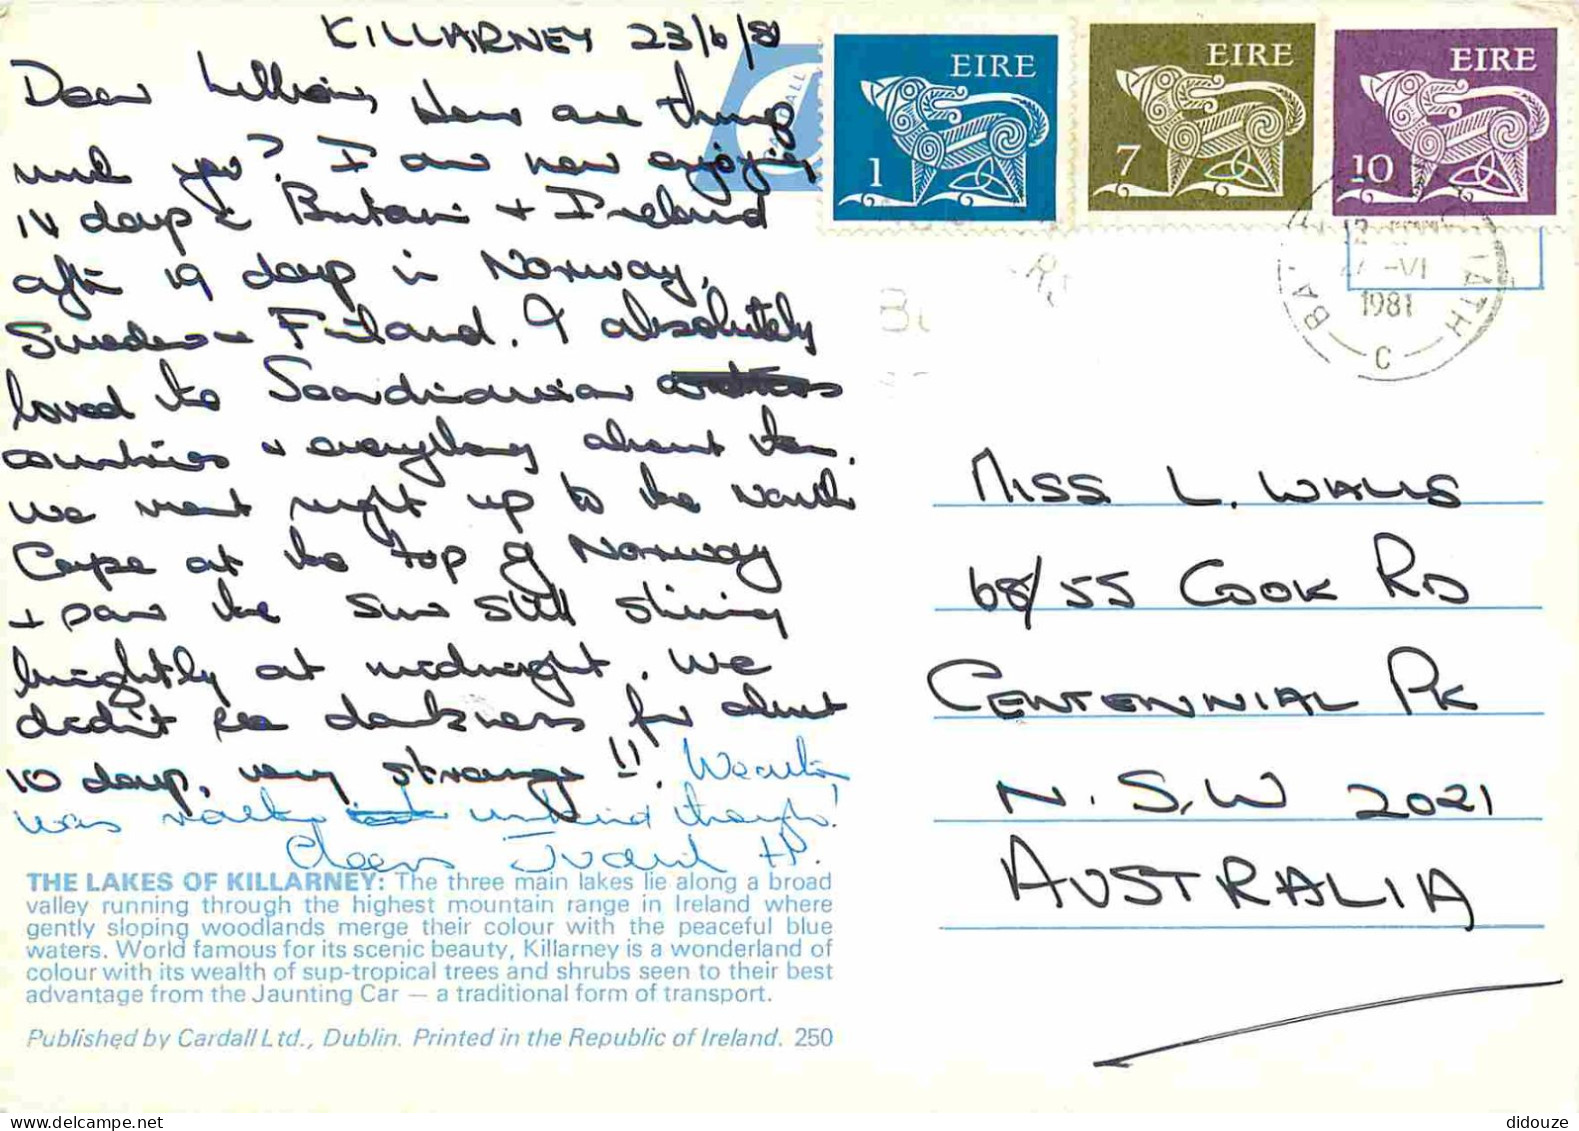 KILLARNEY 23/6/81
Dear Lillian, How are things
with you? I am now enjoying
14 days in Britain + Ireland
after 19 days in Norway,
Sweden + Finland. I absolutely
loved the Scandinavian
countries + everything about them.
We went right up to the North
Cape at the top of Norway
+ saw the sun still shining
brightly at midnight. We
didn't see darkness for about
10 days, very strange!! Weather
was rather unkind though!
Cheers Judith
THE LAKES OF KILLARNEY: The three main lakes lie along a broad
valley running through the highest mountain range in Ireland where
gently sloping woodlands merge their colour with the peaceful blue
waters. World famous for its scenic beauty, Killarney is a wonderland of
colour with its wealth of sup-tropical trees and shrubs seen to their best
advantage from the Jaunting Car — a traditional form of transport.
Published by Cardall Ltd., Dublin. Printed in the Republic of Ireland. 250
EIRE 1
EIRE 7
EIRE 10
-VI
1981
C
MISS L. WALLS
68/55 COOK RD
CENTENNIAL PK
N.S.W 2021
AUSTRALIA
didouze